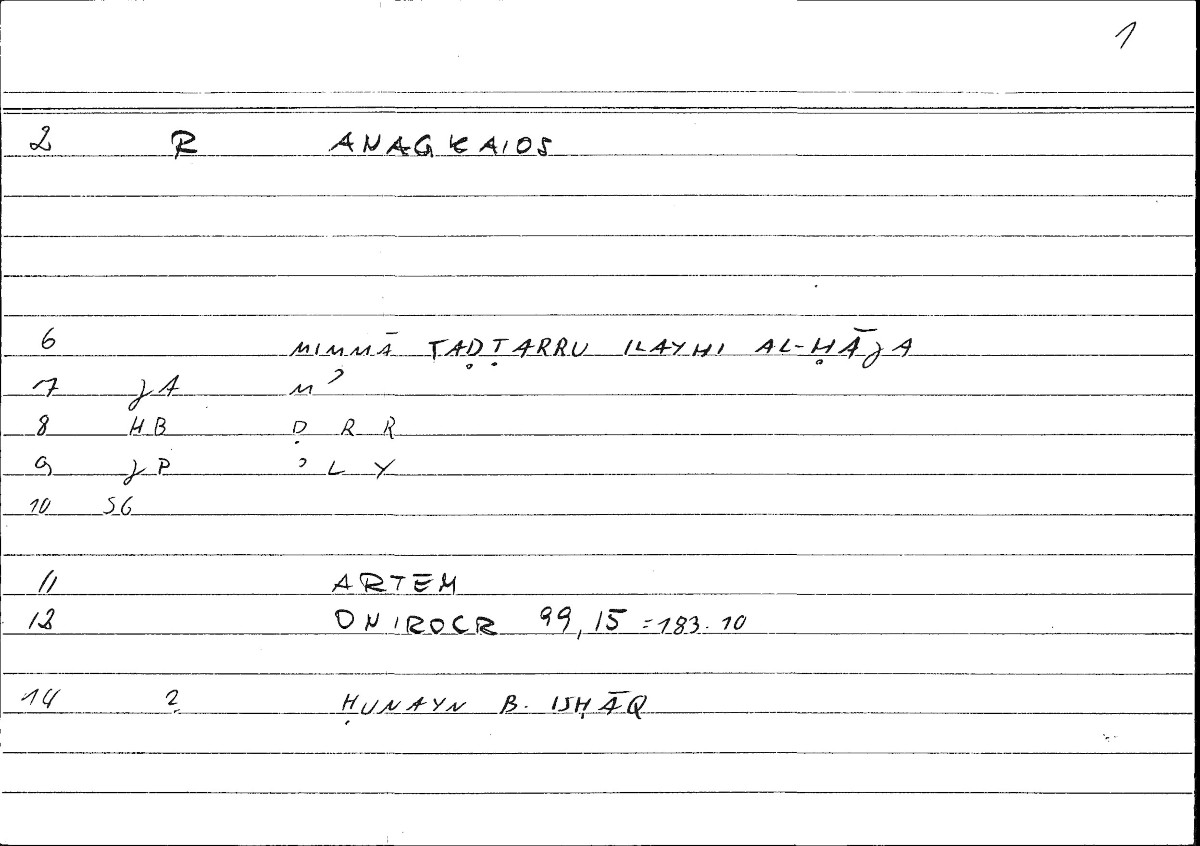 1
2 R ANAGKAIOS
6 MIMMĀ TAḌṬARRU ILAYHI AL-ḤĀJA
7 JA M ʾ
8 HB Ḍ R R
9 JP ʾ L Y
10 SG
11 ARTEM
12 ONIROCR 99,15 = 183.10
14 2 ḤUNAYN B. ISḤĀQ